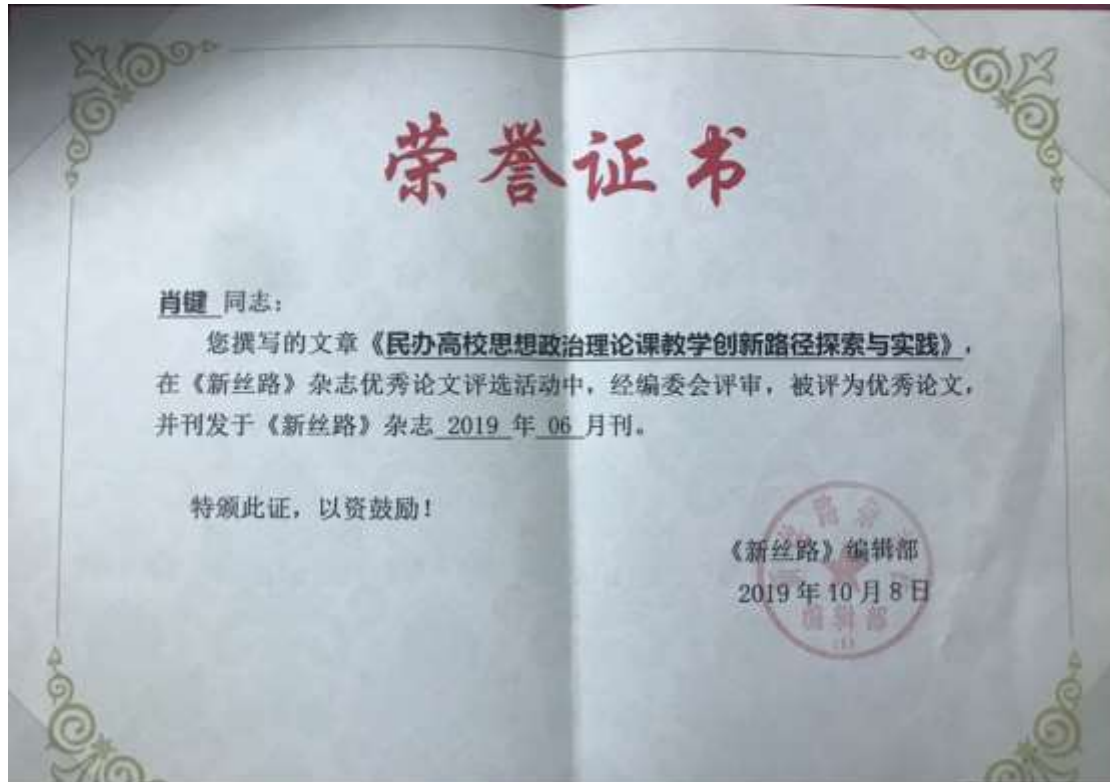 荣誉证书
肖键 同志：
您撰写的文章《民办高校思想政治理论课教学创新路径探索与实践》，
在《新丝路》杂志优秀论文评选活动中，经编委会评审，被评为优秀论文，
并刊发于《新丝路》杂志 2019 年 06 月刊。
特颁此证，以资鼓励！
《新丝路》编辑部
2019 年 10 月 8 日